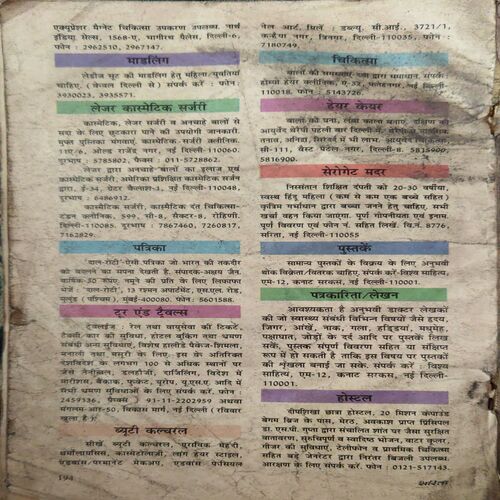 एक्यूप्रेशर मैग्नेट चिकित्सा उपकरण उपलब्ध. नार्थ
इंडिया सेल्स, 1568-ए, भागीरथ पैलेस, दिल्ली-6,
फोन : 2962510, 2967147.
माडलिंग
लेडीज सूट की माडलिंग हेतु महिला/युवतियां
चाहिए. (केवल दिल्ली से) संपर्क करें : फोन :
3930023, 3935571.
लेजर कास्मेटिक सर्जरी
कास्मेटिक, लेजर सर्जरी व अनचाहे बालों से
सदा के लिए छुटकारा पाने की उपयोगी जानकारी.
मुफ्त पुस्तिका मंगवाएं. कास्मेटिक लेजर क्लीनिक,
11ए-6, ओल्ड राजेंद्र नगर, नई दिल्ली-110060.
दूरभाष : 5785802, फैक्स : 011-5728862.
लेजर द्वारा अनचाहे बालों का इलाज एवं
कास्मेटिक सर्जरी: अमेरिका प्रशिक्षित कास्मेटिक सर्जन
द्वारा, ई-34, ग्रेटर कैलाश-3, नई दिल्ली-110048,
दूरभाष : 6486912.
कास्मेटिक सर्जरी, कास्मेटिक दंत चिकित्सा-
टंडन क्लीनिक, 599, सी-8, सैक्टर-8, रोहिणी,
दिल्ली-110085. दूरभाष : 7867460, 7260817,
7162829.
पत्रिका
'दाल-रोटी'-ऐसी पत्रिका जो भारत की तकदीर
को बदलने का सपना देखती है. संपादक-अक्षय जैन.
वार्षिक-50 रुपए. नमूने की प्रति के लिए लिफाफा
भेजें 'दाल-रोटी', 13 रश्मन अपार्टमेंट, एस.एल. रोड,
मुलुंड (पश्चिम), मुंबई-400080. फोन : 5601588.
टूर एंड ट्रैवल्स
ट्रैवलाईज : रेल तथा वायुसेवा की टिकटें,
टैक्सी/कार की सुविधा, होटल बुकिंग तथा भ्रमण
संबंधी अन्य सुविधाएं, विशेष हालीडे पैकेज-शिमला,
मनाली तथा मसूरी के लिए. इस के अतिरिक्त
भारत/विदेश के लगभग 100 से अधिक स्थानों पर
जैसे नैनीताल, डलहौजी, दार्जिलिंग, विदेश में
मारीशस, बैंकाक, फुकेट, यूरोप, यू.एस.ए. आदि में
सभी भ्रमण सुविधाओं के लिए संपर्क करें. फोन :
2459136, फैक्स : 91-11-2202959 अथवा
मंगलम आर-50, विकास मार्ग, नई दिल्ली (रविवार
खुला है).
ब्यूटी कल्चरल
सीखें, ब्यूटी कल्चरल, घुरयमिक मेहंदी,
थर्मोलायसिस, कास्मेटोलोजी, लांग हेयर स्टाइल,
एडवांस/परमानेंट मेकअप, एडवांस फेशियल
194
नेल आर्ट. मिलें : डब्ल्यू. सी.आई., 3721/1,
कन्हैया नगर, त्रिनगर, दिल्ली-110035, फोन :
7180749.
चिकित्सा
बालों की समस्याएं-जवा द्वारा समाधान. संपर्क:
होम्यो हेयर क्लीनिक, ए-32, फतेहनगर, नई दिल्ली-
110018. फोन : 5143726.
हेयर केयर
बालों को घना, लंबा काला बनाएं, दक्षिण की
आयुर्वेद थेरैपी पहली बार दिल्ली में. थेरैपी से मानसिक
तनाव, अनिद्रा, सिरदर्द में भी लाभ. आयुर्वेद चिकित्सा,
सी-111, वैस्ट पटेल नगर, दिल्ली-8. 5816900,
5816900.
सेरोगेट मदर
निस्संतान शिक्षित दंपती को 20-30 वर्षीय,
स्वस्थ हिंदू महिला (कम से कम एक बच्चे सहित)
कृत्रिम गर्भाधान द्वारा बच्चा जनने हेतु चाहिए. सभी
खर्चा वहन किया जाएगा. पूर्ण गोपनीयता एवं इनाम.
पूर्ण विवरण एवं फोन नं. सहित लिखें. वि.नं. 8776,
सरिता, नई दिल्ली-110055
पुस्तकें
सामान्य पुस्तकों के विक्रय के लिए अनुभवी
थोक विक्रेता/वितरक चाहिए. संपर्क करें-विश्व साहित्य,
एम-12, कनाट सरकस, नई दिल्ली-110001.
पत्रकारिता/लेखन
आवश्यकता है अनुभवी डाक्टर लेखकों
की जो स्वास्थ्य संबंधी विभिन्न विषयों जैसे हृदय,
जिगर, आंखें, नाक, गला, हड्डियां, मधुमेह,
पक्षाघात, जोड़ों के दर्द आदि पर पुस्तकें लिख
सकें, पुस्तक संपूर्ण विवरण सहित या संक्षिप्त
रूप में हो सकती है ताकि इस विषय पर पुस्तकों
की शृंखला बनाई जा सके. संपर्क करें : विश्व
साहित्य, एम-12, कनाट सरकस, नई दिल्ली-
110001.
होस्टल
दीपशिखा छात्रा होस्टल, 20 मिशन कंपाउंड
बेगम ब्रिज के पास, मेरठ, अवकाश प्राप्त प्रिंसिपल
डा. एस.पी. गुप्ता द्वारा संचालित शांत पर सजग सुरक्षित
वातावरण, सुरुचिपूर्ण व स्वादिष्ट भोजन, वाटर कूलर,
गीजर की सुविधाएं, टेलीफोन व प्राथमिक चिकित्सा
सहित बड़े जेनरेटर द्वारा निरंतर बिजली उपलब्ध.
आरक्षण के लिए संपर्क करें. फोन : 0121-517143.
सरिता